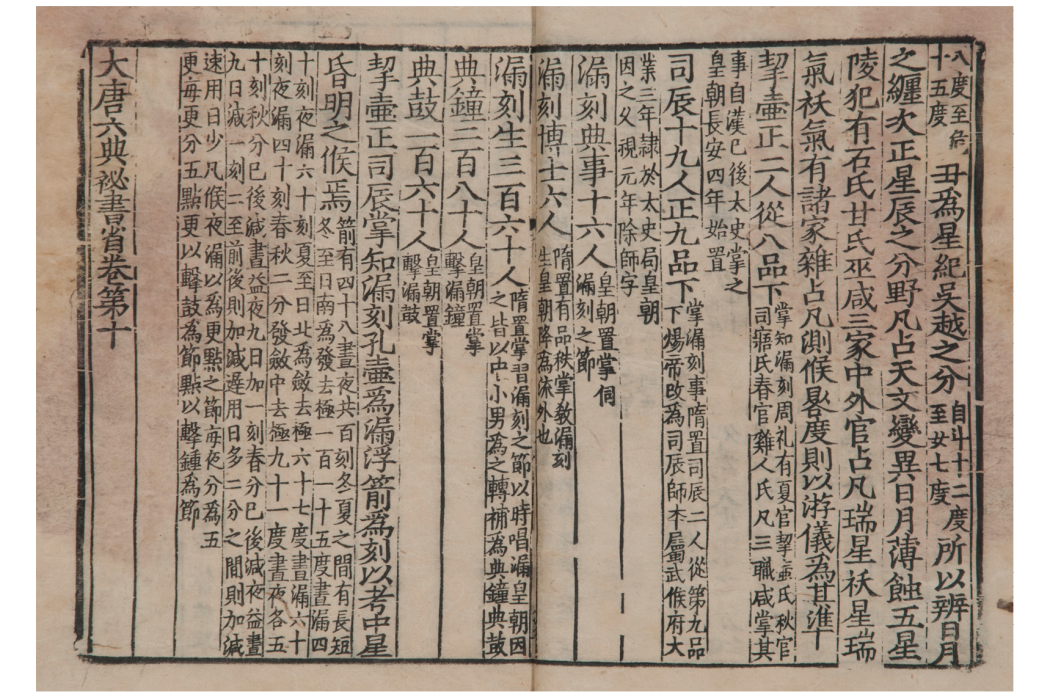 八度至危十五度丑為星紀吳越之分自斗十二度至女七度所以辨日月
之纏次正星辰之分野凡占天文變異日月薄蝕五星
陵犯有石氏甘氏巫咸三家中外官占凡瑞星袄星瑞
氣袄氣有諸家雜占凡測候晷度則以游儀為其準
挈壺正二人從八品下掌知漏刻周礼有夏官挈壺氏秋官司寤氏春官雞人氏凡三職咸掌其
事自漢已後太史掌之皇朝長安四年始置
司辰十九人正九品下掌漏刻事隋置司辰二人從第九品下煬帝改為司辰師本屬武候府大
業三年隸於太史局皇朝因之父視元年除師字
漏刻典事十六人皇朝置掌伺漏刻之節
漏刻博士六人隋置有品秩掌教漏刻生皇朝降為流外也
漏刻生三百六十人隋置掌習漏刻之節以時唱漏皇朝因之皆以中小男為之轉補為典鐘典鼓
典鐘二百八十人皇朝置掌擊漏鐘
典鼓一百六十人皇朝置掌擊漏鼓
挈壺正司辰掌知漏刻孔壺為漏浮箭為刻以考中星
昏明之候焉箭有四十八晝夜共百刻冬夏之間有長短冬至日南為發去極一百一十五度晝漏四
十刻夜漏六十刻夏至日北為斂去極六十七度晝漏六十刻夜漏四十刻春秋二分發斂中去極九十一度晝夜各五
十刻秋分已後減晝益夜九日加一刻春分已後減夜益晝九日減一刻二至前後則加減遲用日多二分之間則加減
速用日少凡候夜漏以為更點之節每夜分為五更每更分五點更以擊鼓為節點以擊鍾為節
大唐六典祕書省卷第十